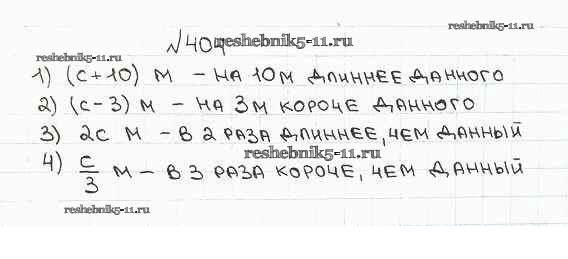 reshebnik5-11.ru
№ 404 reshebnik5-11.ru
reshebnik5-11.ru
1) (с+10) м – на 10м длиннее данного
2) (с-3) м – на 3м короче данного
3) 2с м – в 2 раза длиннее, чем данный
reshebnik5-11.ru
4) с/3 м – в 3 раза короче, чем данный
reshebnik5-11.ru